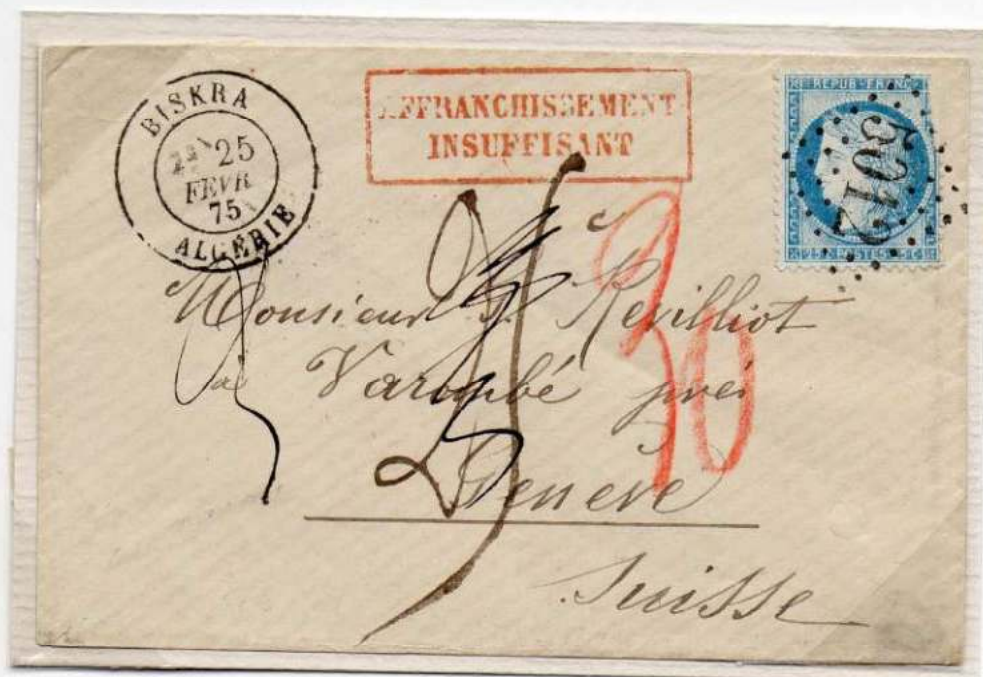 BISKRA
25
FEVR
75
ALGÉRIE
AFFRANCHISSEMENT
INSUFFISANT
REPUB · FRANC
25 POSTES 25 C
Monsieur Revilliot
à Varembé près
Genève
Suisse
30